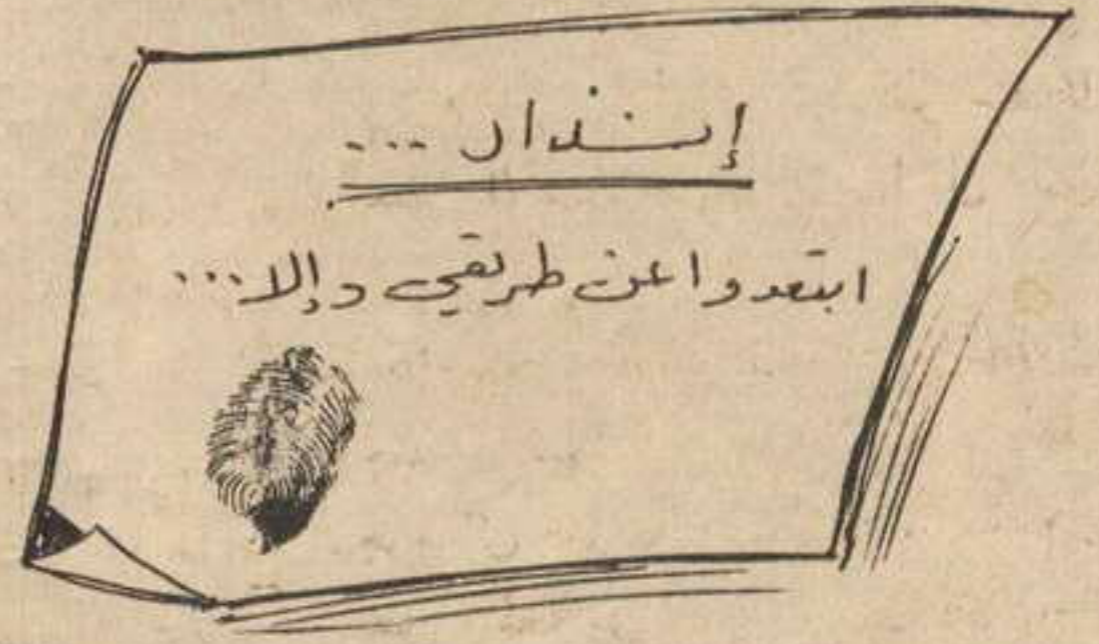 إنذار ...
ابتعدوا عن طريقي وإلا...